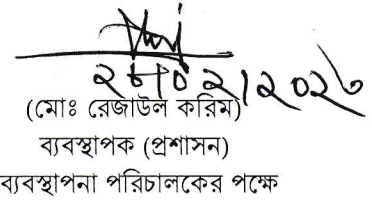 (মোঃ রেজাউল করিম)
ব্যবস্থাপক (প্রশাসন)
ব্যবস্থাপনা পরিচালকের পক্ষে